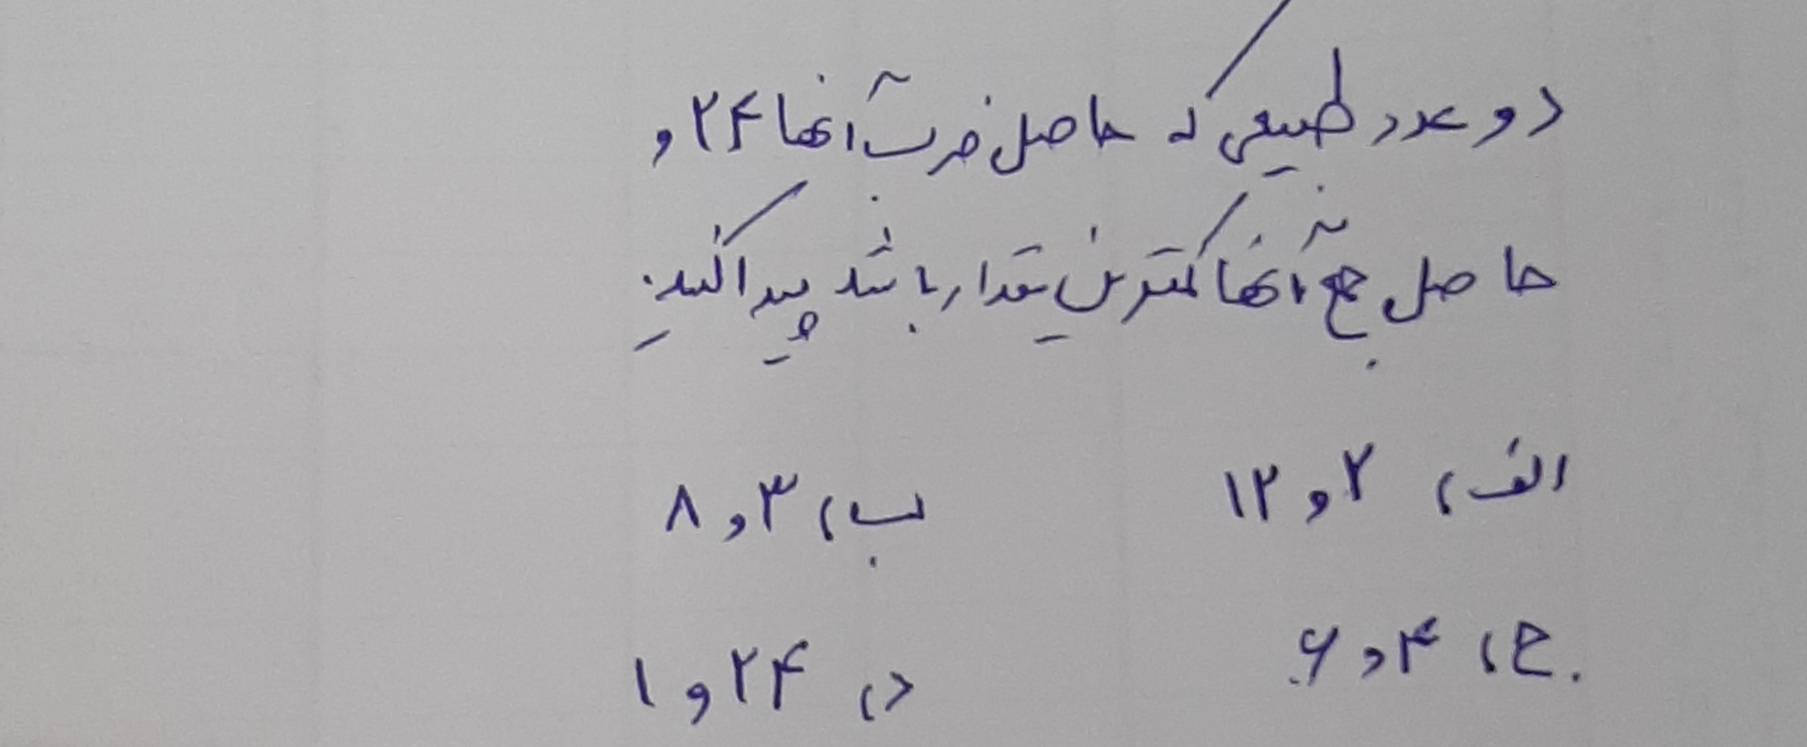 دو عدد طبیعی که حاصل ضرب آنها ۲۴ و
حاصل جمع آنها کمترین مقدار باشد پیدا کنید.
الف) ۲ و ۱۲ ب) ۳ و ۸
ج) ۴ و ۶ د) ۲۴ و ۱